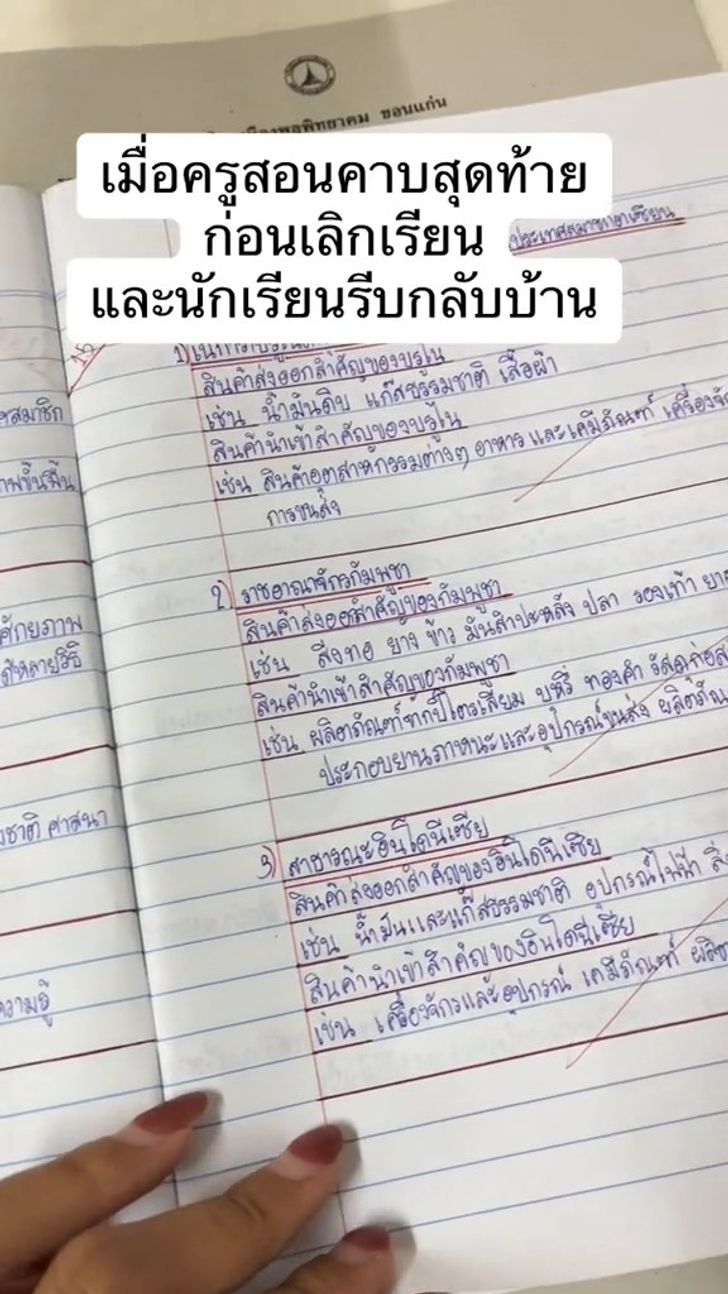 เมืองพลพิทยาคม ขอนแก่น
เมื่อครูสอนคาบสุดท้าย
ก่อนเลิกเรียน
และนักเรียนรีบกลับบ้าน
ประเทศสมาชิกอาเซียน
1)
สินค้าส่งออกสำคัญของบรูไน
เช่น น้ำมันดิบ แก๊สธรรมชาติ เสื้อผ้า
สินค้านำเข้าสำคัญของบรูไน
เช่น สินค้าอุตสาหกรรมต่างๆ อาหาร และเคมีภัณฑ์
การขนส่ง
2) ราชอาณาจักรกัมพูชา
สินค้าส่งออกสำคัญของกัมพูชา
เช่น สิ่งทอ ยาง ข้าว มันสำปะหลัง ปลา รองเท้า
สินค้านำเข้าสำคัญของกัมพูชา
เช่น ผลิตภัณฑ์จากปิโตรเลียม บุหรี่ ทองคำ
ประกอบยานภาหนะและอุปกรณ์ขนส่ง
3) สาธารณะอินโดนีเซีย
สินค้าส่งออกสำคัญของอินโดนีเซีย
เช่น น้ำมันและแก๊สธรรมชาติ อุปกรณ์ไฟฟ้า
สินค้านำเข้าสำคัญของอินโดนีเซีย
เช่น เครื่องจักรและอุปกรณ์ เคมีภัณฑ์
สมาชิก
ศักยภาพ
ชาติ ศาสนา